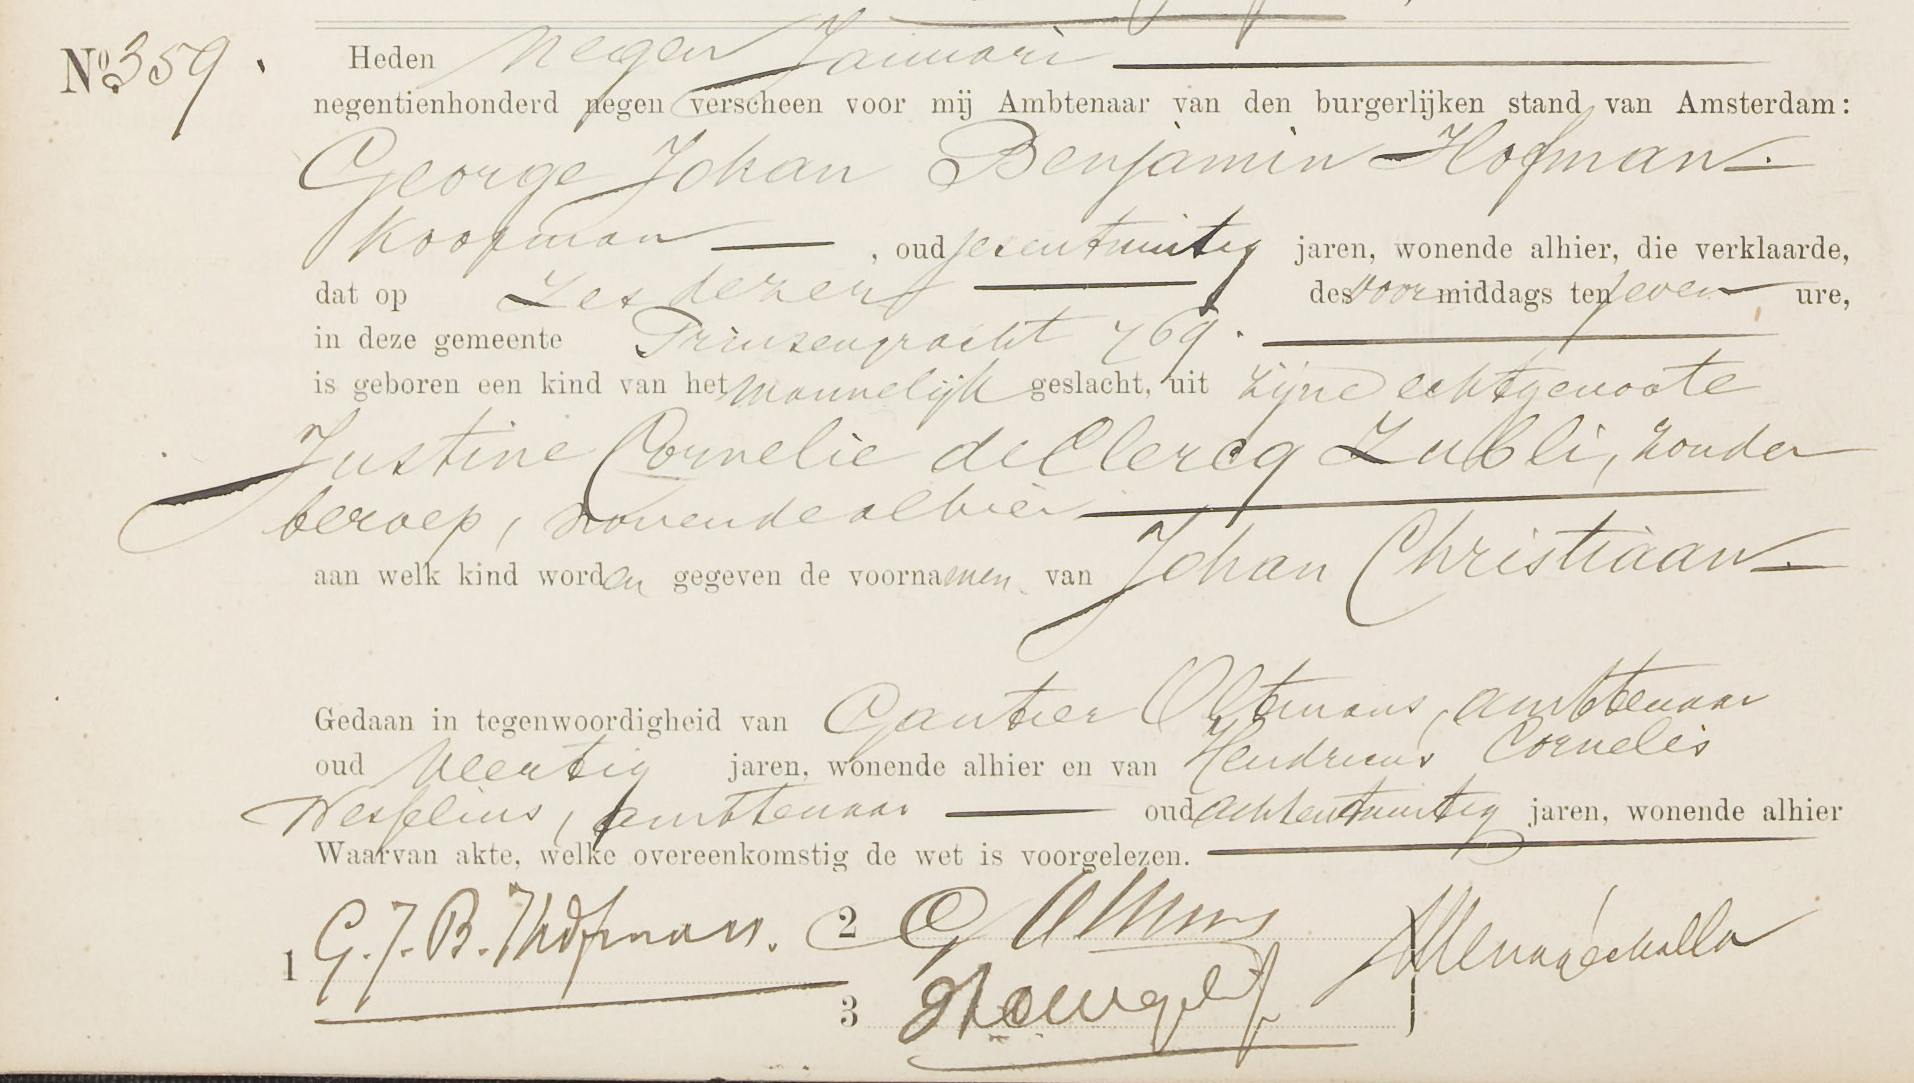 No. 359.
Heden negen Januari
negentienhonderd negen verscheen voor mij Ambtenaar van den burgerlijken stand van Amsterdam:
George Johan Benjamin Hofman
Koopman, oud zesentwintig jaren, wonende alhier, die verklaarde,
dat op Zes dezer des voormiddags ten zeven ure,
in deze gemeente Prinsengracht 769.
is geboren een kind van het mannelijk geslacht, uit zijne echtgenoote
Justine Cornelie de Clercq Zubli, zonder
beroep, wonende alhier
aan welk kind worden gegeven de voornamen van Johan Christiaan
Gedaan in tegenwoordigheid van Gautier Oltmans, ambtenaar
oud Veertig jaren, wonende alhier en van Hendricus Cornelis
Wesselius, ambtenaar oud achtentwintig jaren, wonende alhier
Waarvan akte, welke overeenkomstig de wet is voorgelezen.
1 G. J. B. Hofman.
2 G Oltmans
3